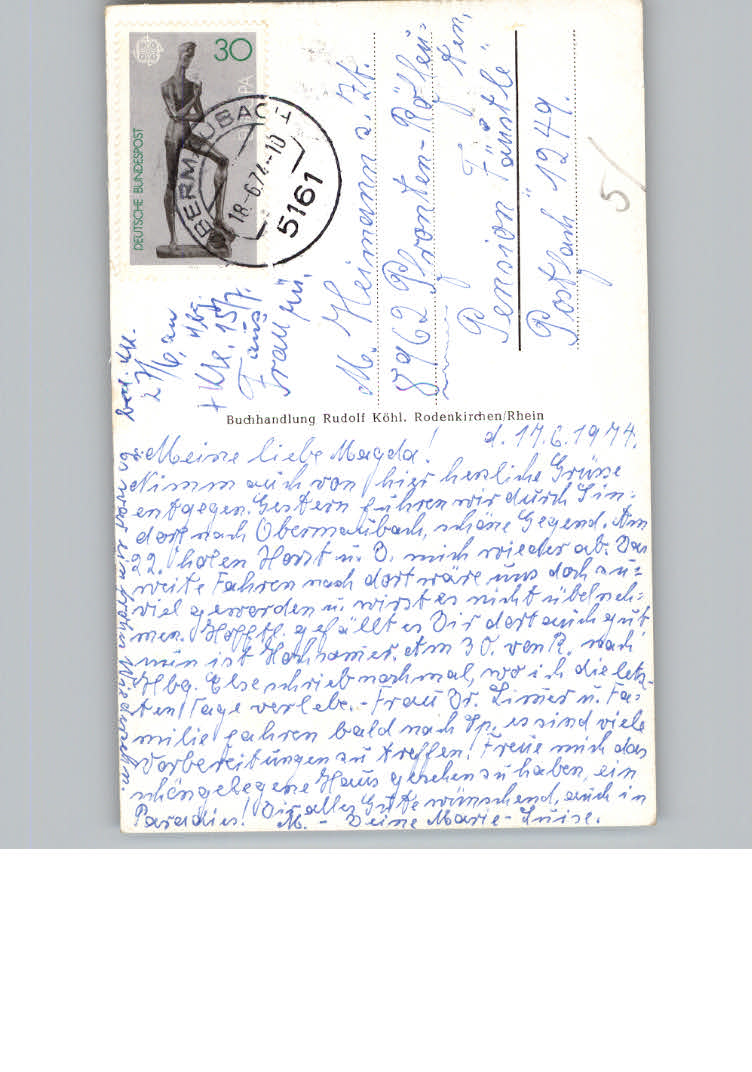 30
DEUTSCHE BUNDESPOST
EUROPA
OBERMAUBACH
18.-6.74-10
5161
M. Heimann z. Zt.
8962 Pfronten-Röfleu-
ten,
Pension "Täustle"
Postfach 1249.
5/
27/6. an
+ Kle. 15/7.
aus
Frau Mü.
Buchhandlung Rudolf Köhl. Rodenkirchen/Rhein
d. 17.6.1974.
Meine liebe Magda!
Nimm auch von hier herzliche Grüsse
entgegen. Gestern fuhren wir durch Lin-
dort nach Obermaubach, schöne Gegend. Am
22. holen Horst u. D. mich wieder ab. Das
weite Fahren nach dort wäre uns doch zu-
viel geworden u. wirst es nicht übelneh-
men. Hofftl. gefällt es Dir dort auch gut
nun ist Hochsomer. Am 30. von R. nach
Hbg. Else schrieb nochmal, wo ich die letz-
ten Tage verlebe. - Frau Dr. Limer u. Fa-
milie fahren bald nach Sp. es sind viele
Vorbereitungen zu treffen. Freue mich das
schöngelegene Haus gesehen zu haben, ein
Paradies! Dir alles Gute wünschend, auch in
M. - Deine Marie-Luise.
frohes Wiedersehen.